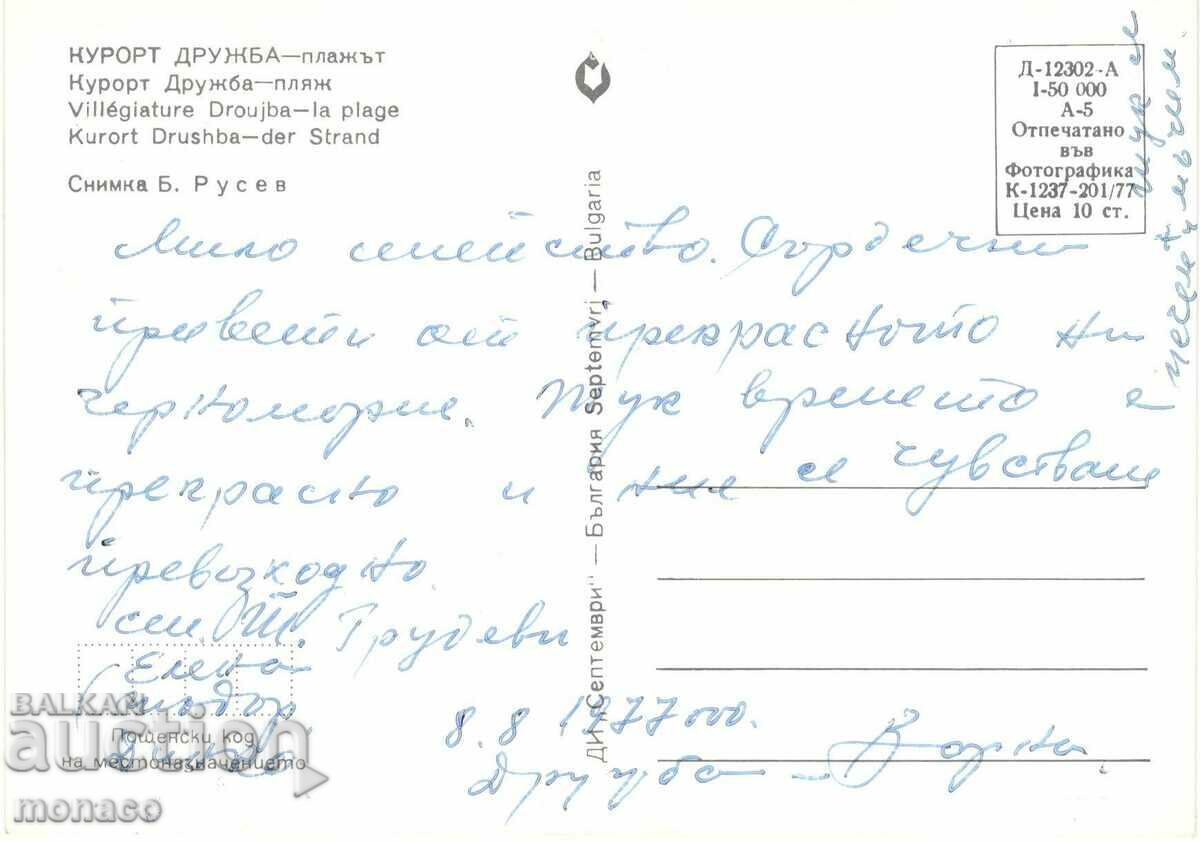 КУРОРТ ДРУЖБА—плажът
Курорт Дружба—пляж
Villégiature Droujba—la plage
Kurort Drushba—der Strand
Снимка Б. Русев
Д-12302-А
I-50 000
А-5
Отпечатано
във
Фотографика
К-1237-201/77
Цена 10 ст.
ДИ „Септември" — България Septemvrj — Bulgaria
Мило семейство. Сърдечни
привети от прекрасното ни
черноморие. Тук времето е
прекрасно и ние се чувстваме
превъзходно
сем. Т. Трудеви
Елена
Тодор
8.8 1977 год.
Дружба – Варна
тук и
Пощенски код
на местоназначението
BALKAN
auction
monaco